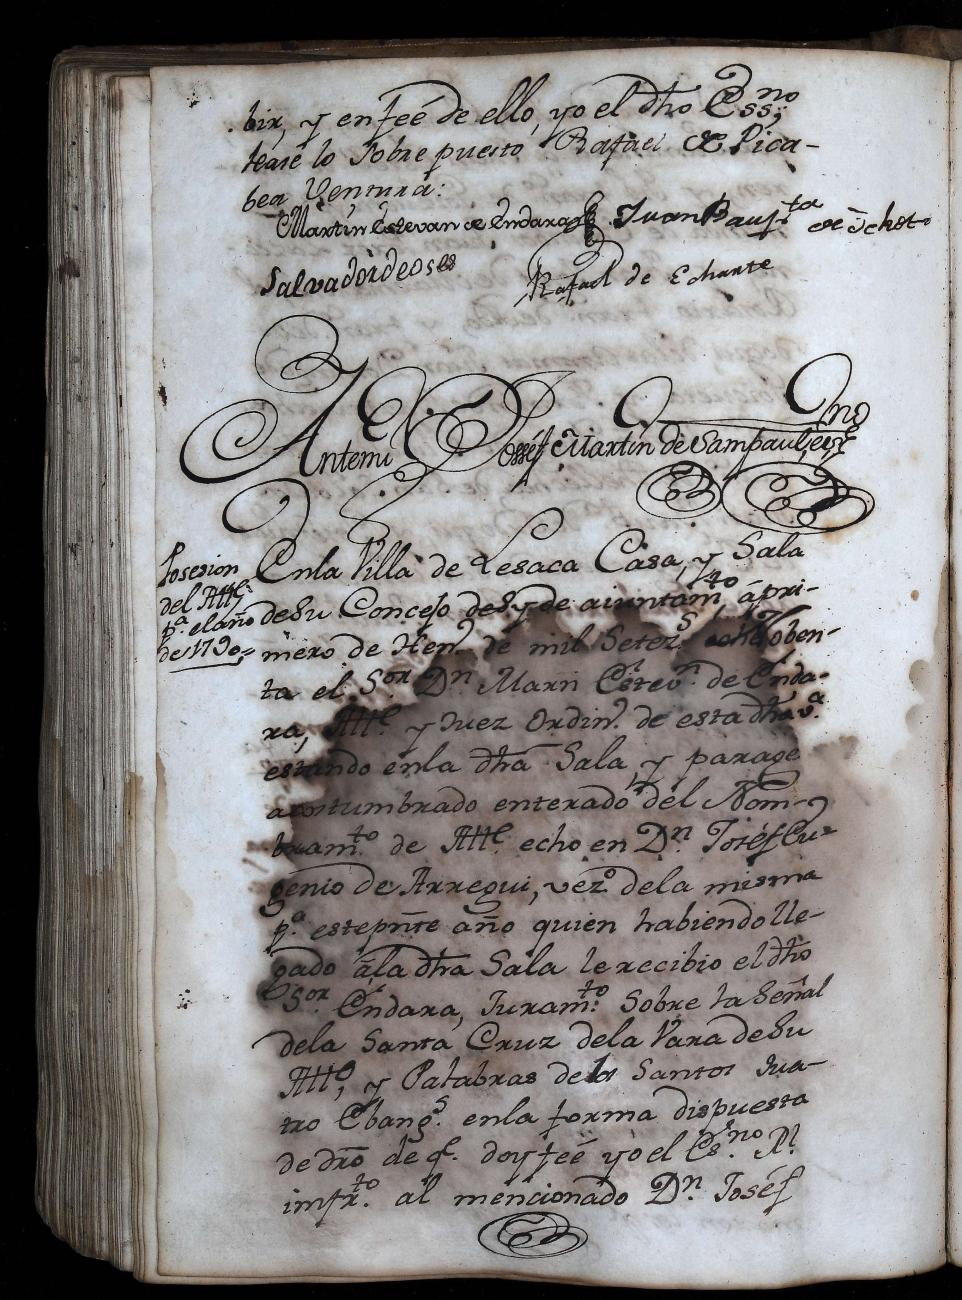 bir, y en feé de ello, yo el dho Essno
tease lo sobre puesto Rafael de Pica-
bea Ventura:
Martin Estevan de Endara Juan Bauta de Echet
Salvador de Oses
Rafael de Echarte
Antemi Josséf Martin de Sampaul, essno
Posesion
del Alle
pa. el año
de 1790,,
En la Villa de Lesaca Casa, y Sala
de su Concejo de Sy de aiuntamto. á pri-
mero de Hen. de mil setezs. ochenta
ta el Sor Dn Marn Estevn. de Enda-
ra, Alle. y Juez Ordinº. de esta dha va.
estando en la dha Sala, y parage
acostumbrado enterado del Nom-
bramto. de Alle. echo en Dn Joséf Eu-
genio de Arregui, vezº. de la misma
pa. este pnte año quien habiendo lle-
gado á la dha Sala le recibio el dho
Sor Endara, Juramto. sobre la señal
de la Santa Cruz de la Vara de su
Alle, y Palabras de los Santos Qua-
tro Ebangs. en la forma dispuesta
de dro de q. doy feé yo el Esno. Rl.
infrto. al mencionado Dn. Joséf